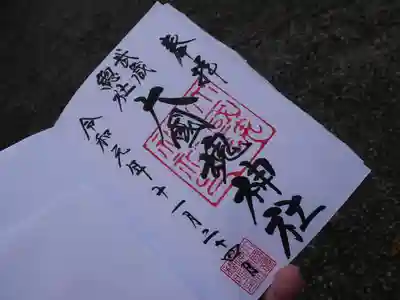 奉拝
大國魂神社
武蔵総社
令和元年十一月二十四日